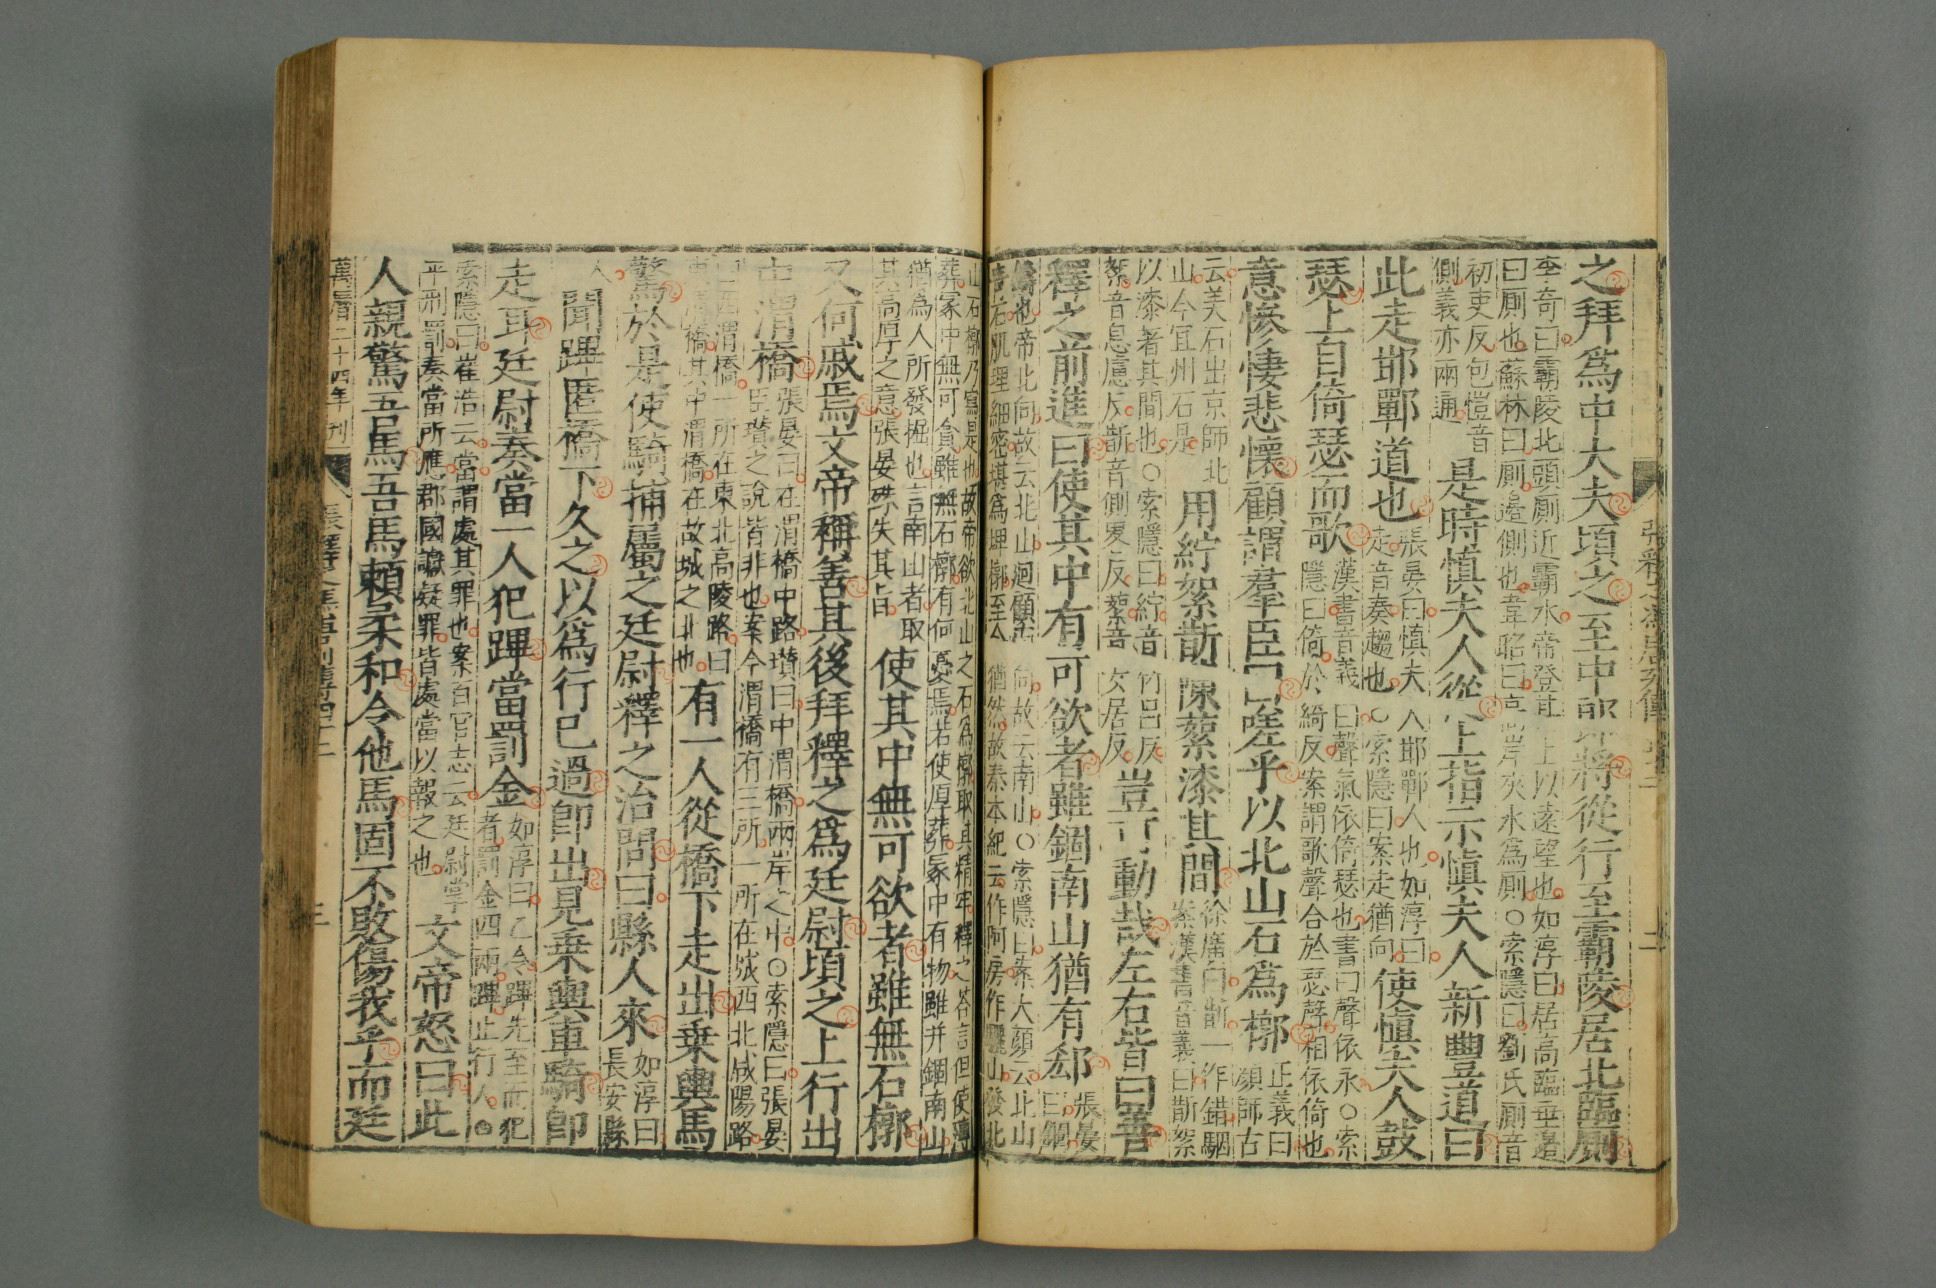 之拜爲中大夫頃之至中郎將從行至霸陵居北臨廁
李奇曰霸陵北頭廁近霸水帝登其上以遠望也如淳曰居高臨垂邊
曰廁也蘇林曰廁邊側也韋昭曰高岸夾水爲廁○索隱曰劉氏廁音
初吏反包愷音
側義亦兩通
是時愼夫人從上指示愼夫人新豐道曰
此走邯鄲道也
張晏曰愼夫人邯鄲人也如淳曰
走音奏趨也○索隱曰案走猶向
使愼夫人鼓
瑟上自倚瑟而歌
漢書音義曰聲氣依倚瑟也書曰聲依永○索
隱曰倚於綺反案謂歌聲合於瑟聲相依倚也
意慘悽悲懷顧謂羣臣曰嗟乎以北山石爲槨
正義曰
顏師古
云美石出京師北
山今宜州石是
用紵絮斮陳蘩漆其間
徐廣曰斮一作錯駰
案漢書音義曰斮絮
以漆著其間也○索隱曰紵音竹呂反
絮音息慮反斮音側畧反蘩音女居反
豈可動哉左右皆曰善
釋之前進曰使其中有可欲者雖錮南山猶有郄
張晏
曰錮
鑄也帝北向故云北山迴顧
向故云南山○索隱曰案大顏云北山
青石肌理細密堪爲
槨至今猶然故秦本紀云作阿房作驪山發北
山石槨乃寫是也故帝欲北山之石爲槨取其精牢釋之答言但使薄
葬冢中無可貪雖無石槨有何憂焉若使厚葬冢中有物雖并錮南山
猶爲人所發掘也言南山者取
其高厚之意張晏殊失其旨
使其中無可欲者雖無石槨
又何戚焉文帝稱善其後拜釋之爲廷尉頃之上行出
中渭橋
張晏曰在渭橋中路瓚曰中渭橋兩岸之中○索隱曰張晏
臣瓚之說皆非也案今渭橋有三所一所在城西北咸陽路
曰西渭橋一所在東北高陵路曰
東渭橋其中渭橋在故城之北也
有一人從橋下走出乗輿馬
驚於是使騎捕屬之廷尉釋之治問曰縣人來
如淳曰
長安縣
人
聞蹕匿橋下久之以爲行已過即出見乗輿車騎即
走耳廷尉奏當一人犯蹕當罰金
如淳曰乙令蹕先至而犯
者罰金四兩蹕止行人
索隱曰崔浩云當謂處其罪也案百官志云廷尉掌
平刑罰奏當所應郡國讞疑罪皆處當以報之也
文帝怒曰此
人親驚吾馬吾馬賴柔和令他馬固不敗傷我乎而廷
萬曆二十四年刊
三